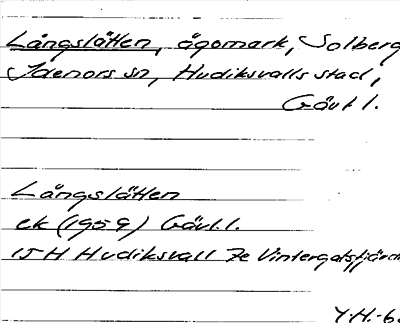 Långslåtten, ägomark, Solberg
Idenors sn, Hudiksvalls stad,
Gävl l.
Långslåtten
ek (1959) Gävl. l.
15 H Hudiksvall 7e
Y.H.-6